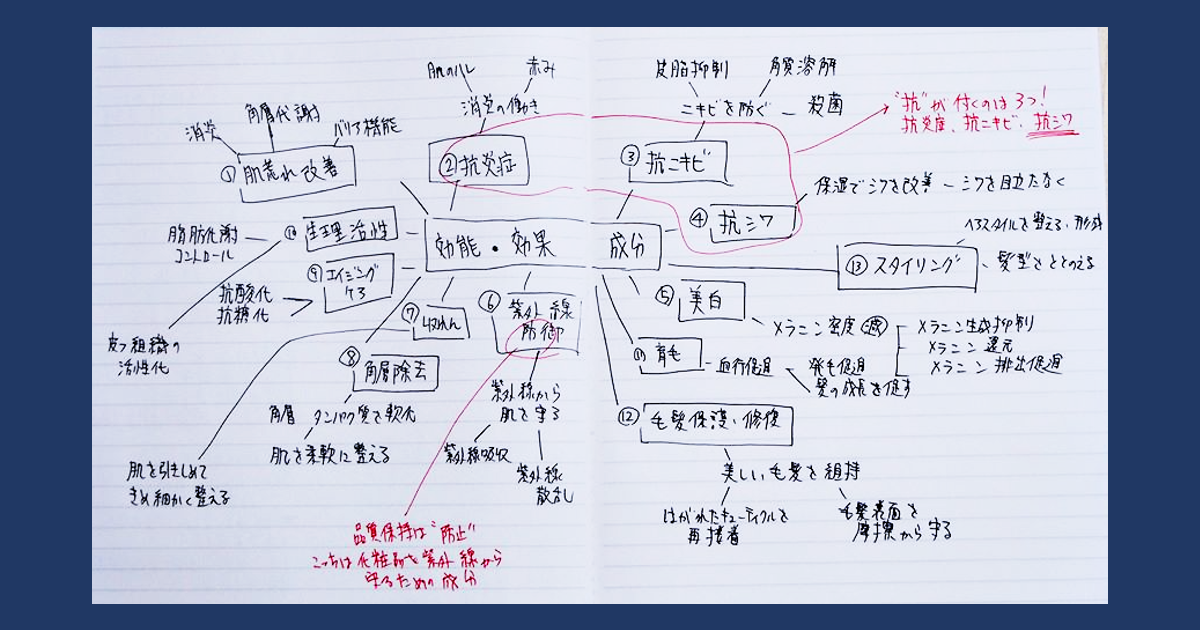 効能・効果 成分
① 肌荒れ改善
消炎
角層代謝
バリア機能
② 抗炎症
消炎の働き
肌のハレ
赤み
③ 抗ニキビ
ニキビを防ぐ
皮脂抑制
角質溶解
殺菌
"抗"が付くのは3つ!
抗炎症、抗ニキビ、抗シワ
④ 抗シワ
保湿でシワを改善 ー シワを目立たなく
⑬ スタイリング
ヘアスタイルを整える、形成
髪型をととのえる
⑤ 美白
メラニン密度 減
メラニン生成抑制
メラニン還元
メラニン排出促進
⑪ 育毛
血行促進
発毛促進
髪の成長を促す
⑫ 毛髪保護、修復
美しい毛髪を維持
はがれたキューティクルを
再接着
毛髪表面を
摩擦から守る
⑥ 紫外線
防御
紫外線から
肌を守る
紫外線吸収
紫外線
散乱
品質保持は"防止"
こっちは化粧品を紫外線から
守るための成分
⑦ 収れん
肌を引きしめて
きめ細かく整える
⑧ 角層除去
角層 タンパク質を軟化
肌を柔軟に整える
⑨ エイジング
ケア
抗酸化
抗糖化
⑩ 生理活性
脂肪代謝
コントロール
皮フ組織の
活性化